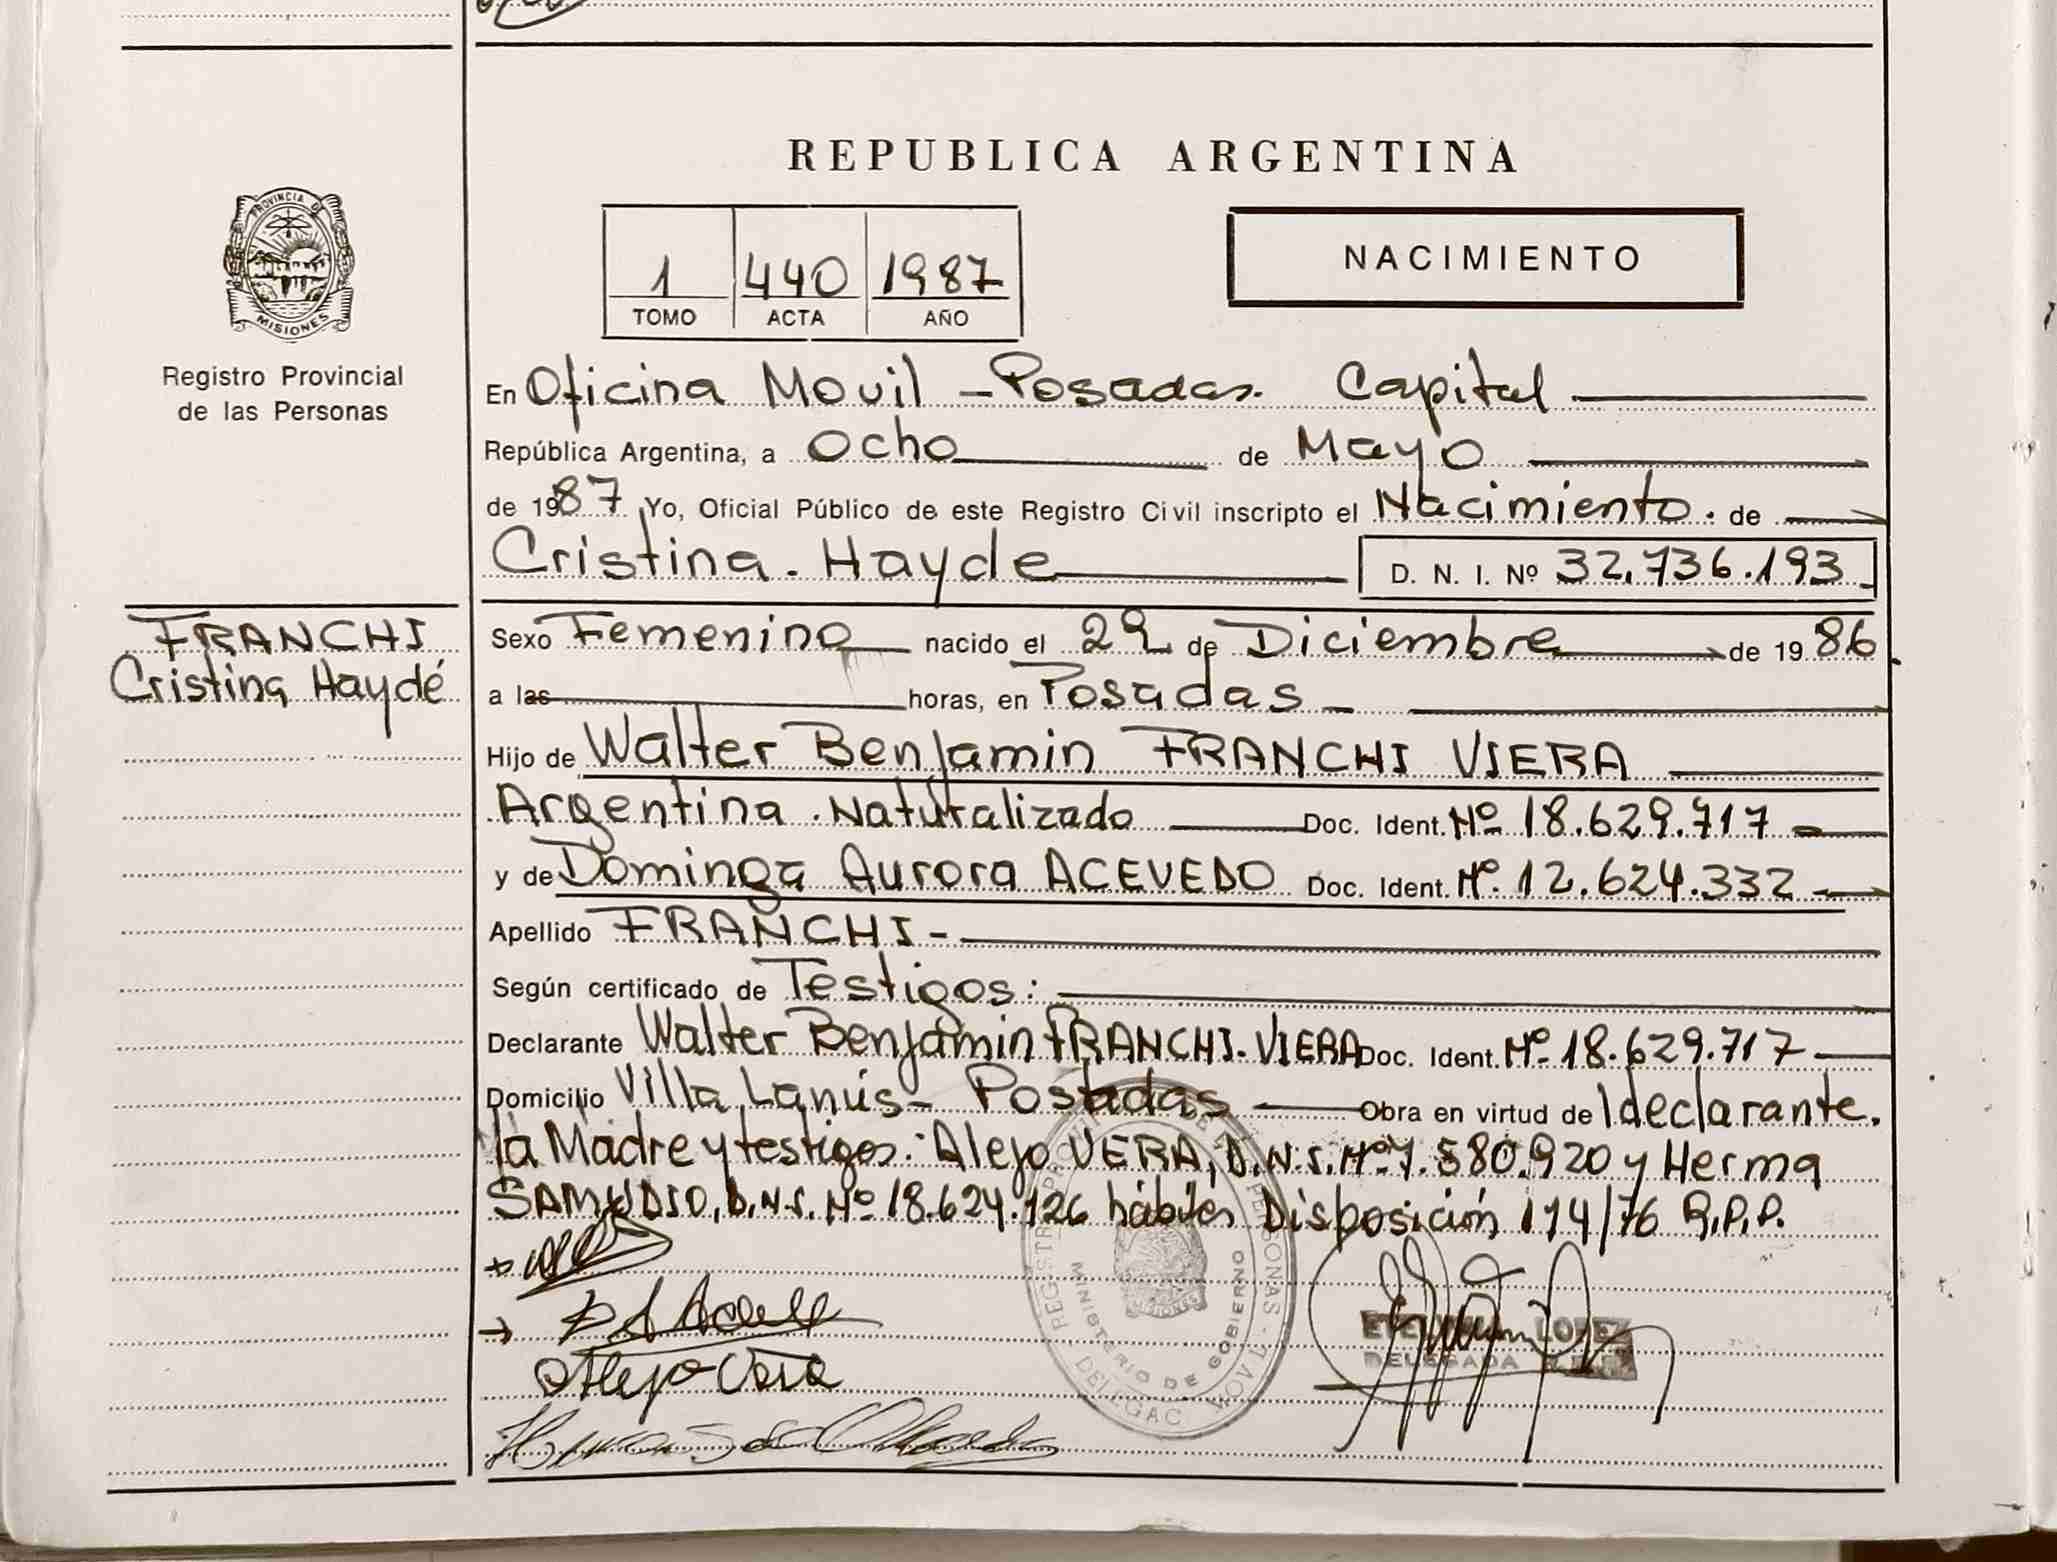 REPUBLICA ARGENTINA
PROVINCIA D
MISIONES
Registro Provincial
de las Personas
1 440 1987
TOMO ACTA AÑO
NACIMIENTO
En Oficina Movil - Posadas. Capital
República Argentina, a Ocho de Mayo
de 1987 Yo, Oficial Público de este Registro Civil inscripto el Nacimiento. de
Cristina. Hayde D. N. I. Nº 32.736.193
FRANCHI
Cristina Haydé
Sexo Femenino nacido el 29 de Diciembre de 1986
a las horas, en Posadas
Hijo de Walter Benjamin FRANCHI VIERA
Argentina. Naturalizado Doc. Ident. Nº 18.629.717
y de Dominga Aurora ACEVEDO Doc. Ident. Nº. 12.624.332
Apellido FRANCHI-
Según certificado de Testigos:
Declarante Walter Benjamin FRANCHI. VIERA Doc. Ident. Nº 18.629.717
Domicilio Villa Lanús- Posadas Obra en virtud de l declarante.
la Madre y testigos: Alejo VERA, D.N.I. Nº 7.580.920 y Herma
SAMUDIO, D.N.I. Nº 18.624.126 hábiles Disposición 114/76 R.P.P.
Alejo Vera
MINISTERIO DE GOBIERNO
MISIONES
LOPEZ
DELEGADA